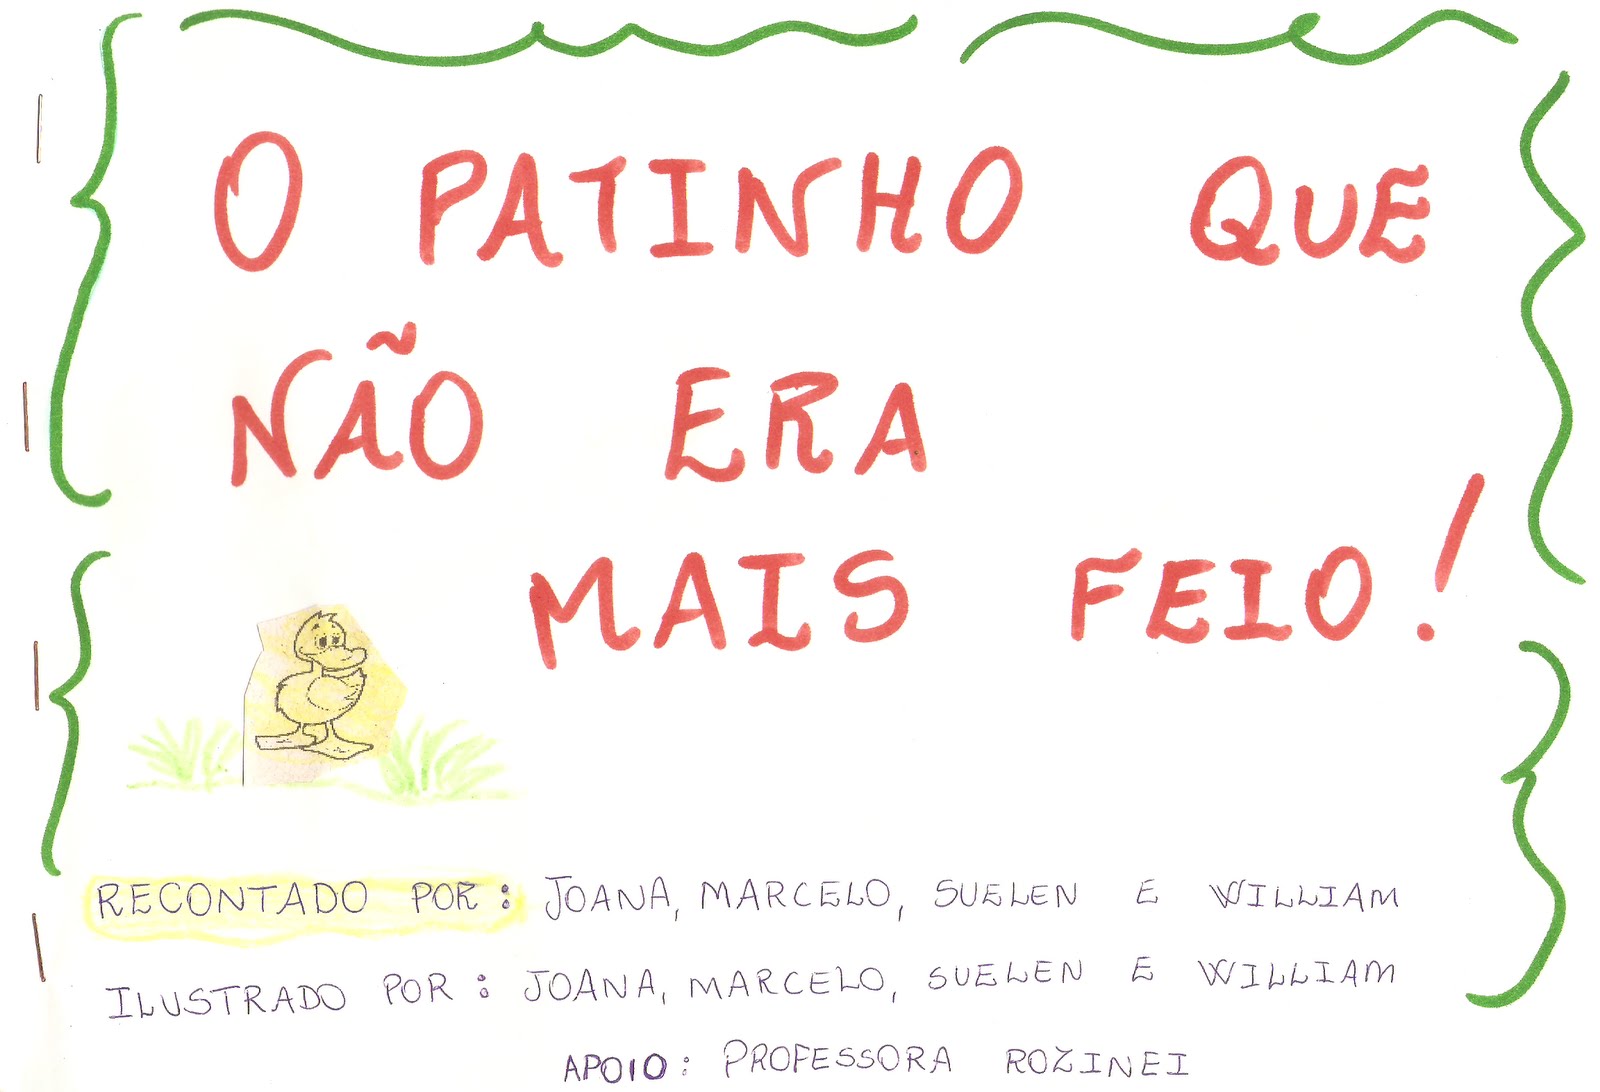 O PATINHO QUE
NÃO ERA
MAIS FEIO!
RECONTADO POR: JOANA, MARCELO, SUELEN E WILLIAM
ILUSTRADO POR: JOANA, MARCELO, SUELEN E WILLIAM
APOIO: PROFESSORA ROZINEI